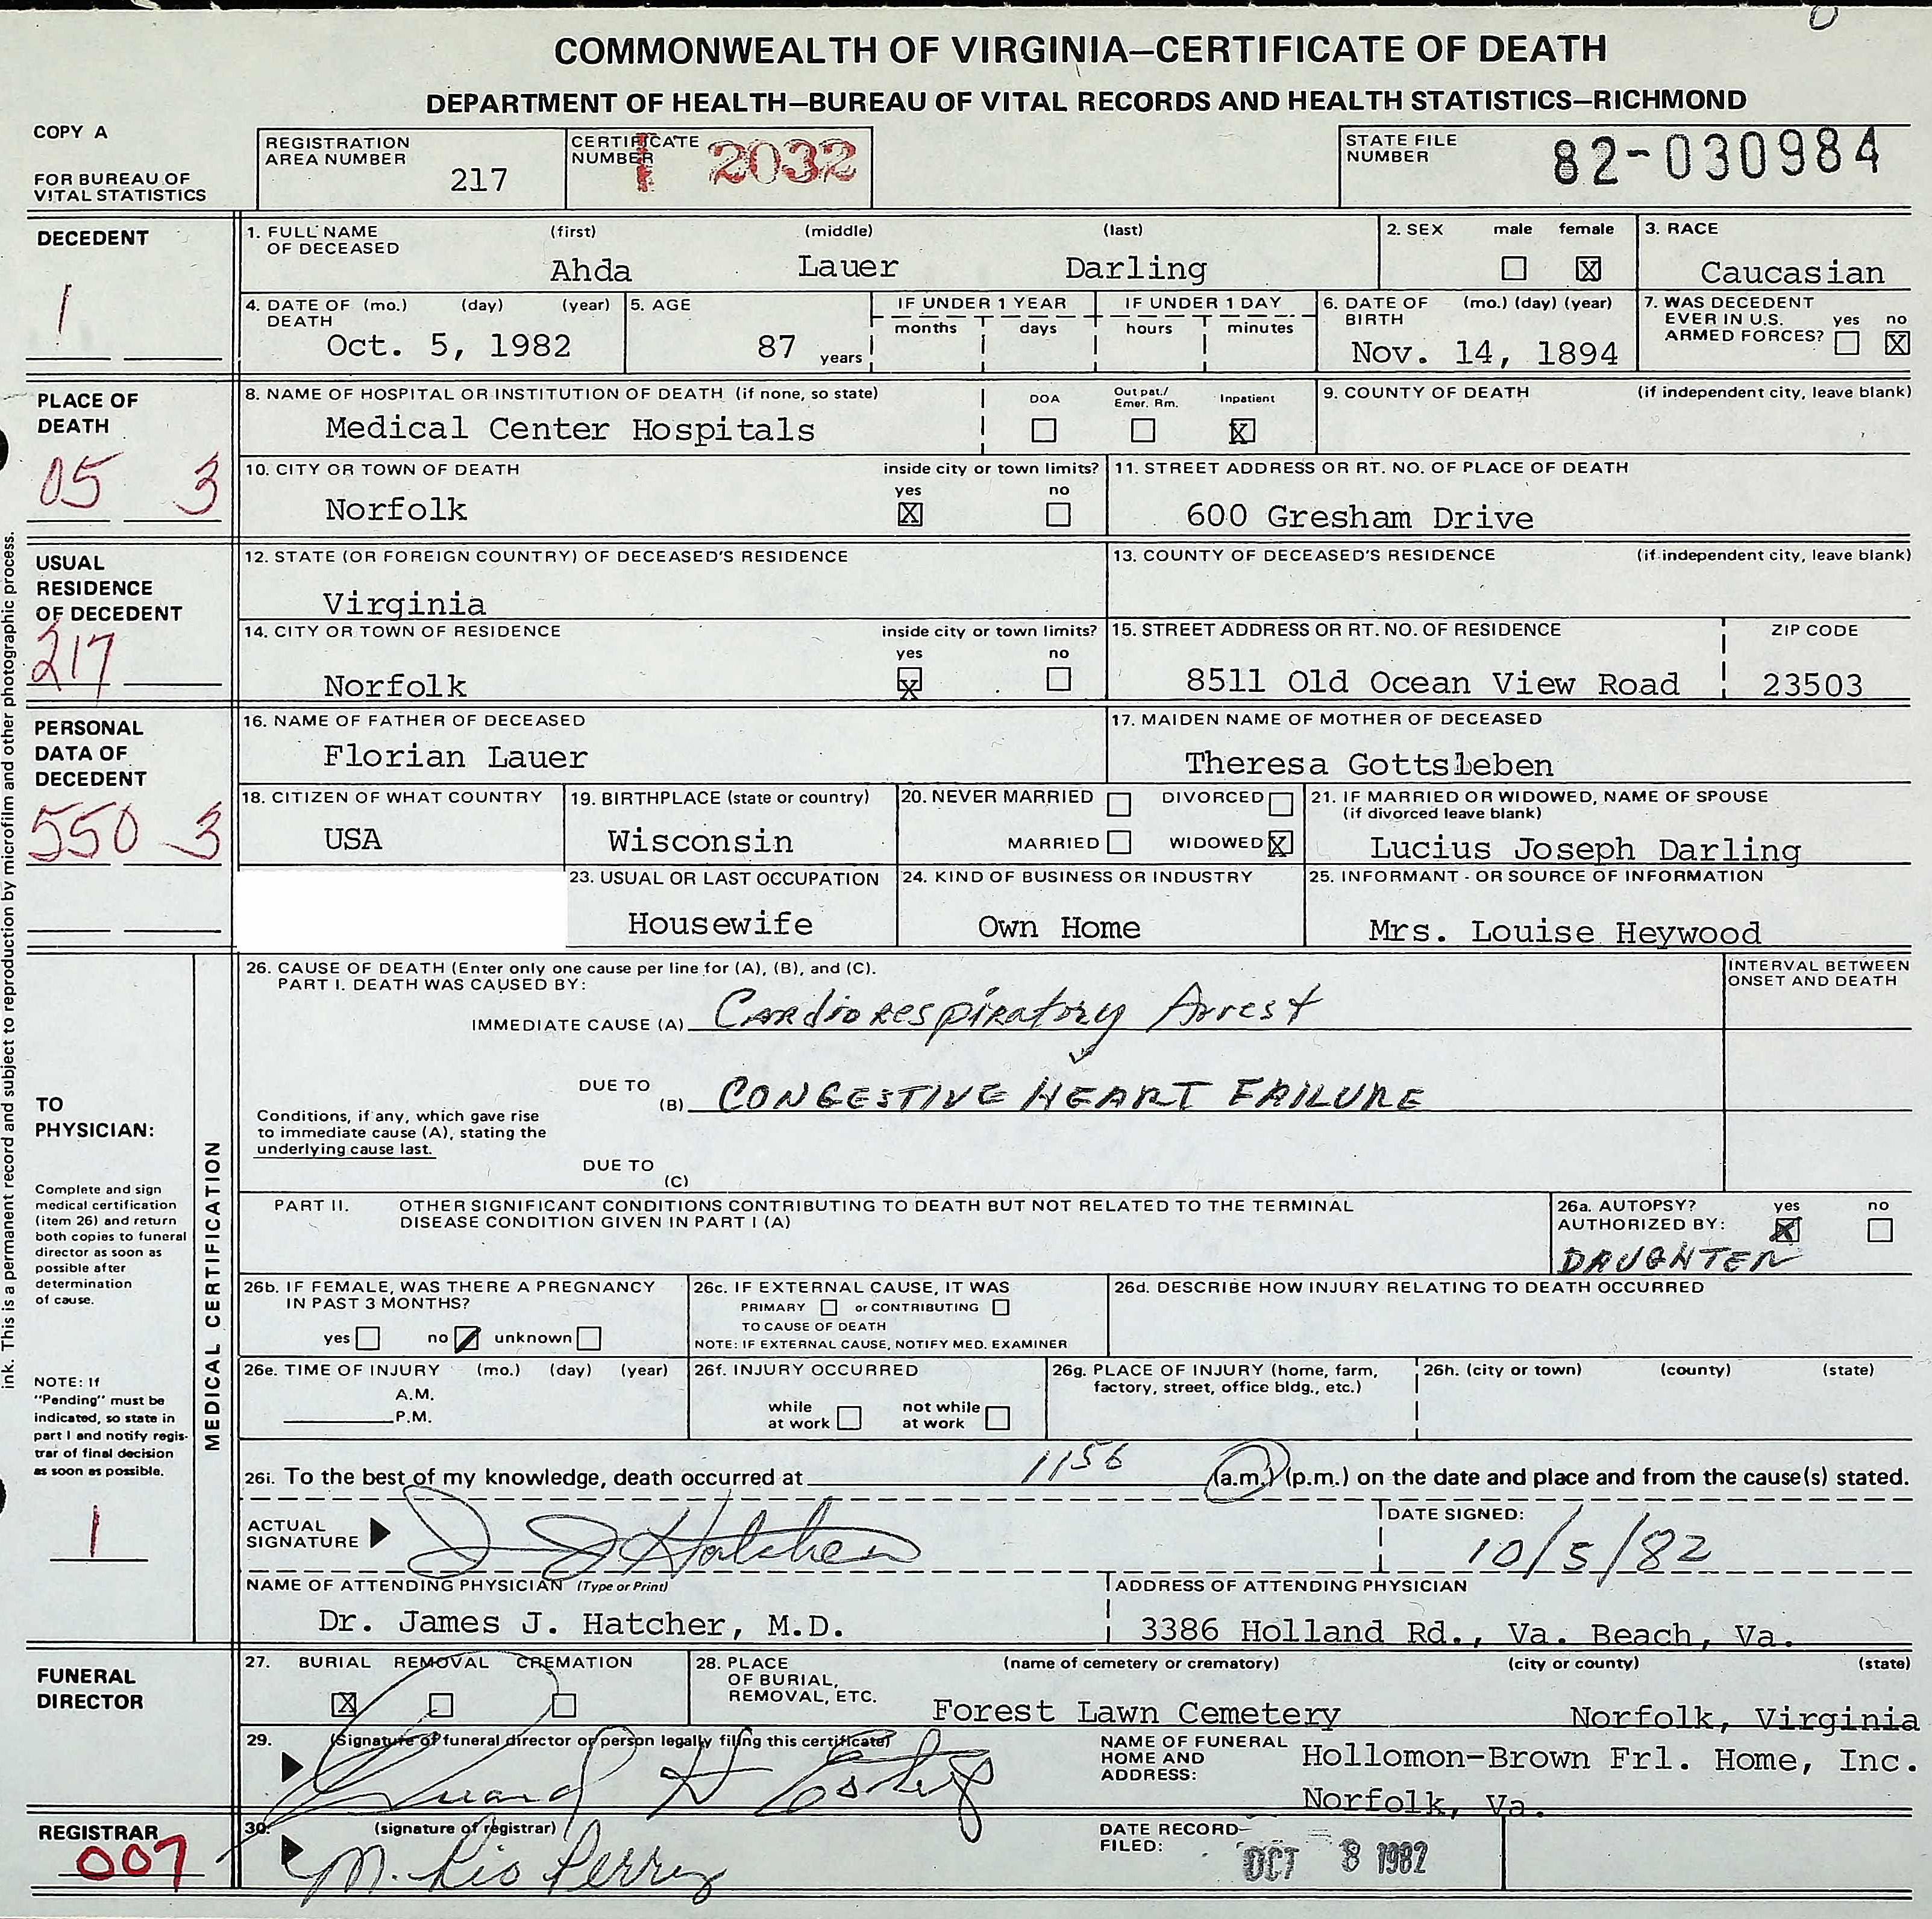 COMMONWEALTH OF VIRGINIA—CERTIFICATE OF DEATH
DEPARTMENT OF HEALTH—BUREAU OF VITAL RECORDS AND HEALTH STATISTICS—RICHMOND
COPY A
FOR BUREAU OF
VITAL STATISTICS
REGISTRATION
AREA NUMBER
217
CERTIFICATE
NUMBER
2032
STATE FILE
NUMBER
82-030984
DECEDENT
1
1. FULL NAME
OF DECEASED
(first) (middle) (last)
Ahda Lauer Darling
2. SEX male female
X
3. RACE
Caucasian
4. DATE OF (mo.) (day) (year)
DEATH
Oct. 5, 1982
5. AGE
87 years
IF UNDER 1 YEAR
months days
IF UNDER 1 DAY
hours minutes
6. DATE OF (mo.) (day) (year)
BIRTH
Nov. 14, 1894
7. WAS DECEDENT
EVER IN U.S. yes no
ARMED FORCES? X
PLACE OF
DEATH
05 3
8. NAME OF HOSPITAL OR INSTITUTION OF DEATH (if none, so state)
Medical Center Hospitals
DOA
Out pat./
Emer. Rm.
Inpatient
X
9. COUNTY OF DEATH (if independent city, leave blank)
10. CITY OR TOWN OF DEATH inside city or town limits?
yes no
Norfolk X
11. STREET ADDRESS OR RT. NO. OF PLACE OF DEATH
600 Gresham Drive
USUAL
RESIDENCE
OF DECEDENT
217
12. STATE (OR FOREIGN COUNTRY) OF DECEASED'S RESIDENCE
Virginia
13. COUNTY OF DECEASED'S RESIDENCE (if independent city, leave blank)
14. CITY OR TOWN OF RESIDENCE inside city or town limits?
yes no
Norfolk X
15. STREET ADDRESS OR RT. NO. OF RESIDENCE ZIP CODE
8511 Old Ocean View Road 23503
PERSONAL
DATA OF
DECEDENT
550 3
16. NAME OF FATHER OF DECEASED
Florian Lauer
17. MAIDEN NAME OF MOTHER OF DECEASED
Theresa Gottsleben
18. CITIZEN OF WHAT COUNTRY
USA
19. BIRTHPLACE (state or country)
Wisconsin
20. NEVER MARRIED DIVORCED
MARRIED WIDOWED X
21. IF MARRIED OR WIDOWED, NAME OF SPOUSE
(if divorced leave blank)
Lucius Joseph Darling
23. USUAL OR LAST OCCUPATION
Housewife
24. KIND OF BUSINESS OR INDUSTRY
Own Home
25. INFORMANT - OR SOURCE OF INFORMATION
Mrs. Louise Heywood
ink. This is a permanent record and subject to reproduction by microfilm and other photographic process.
TO
PHYSICIAN:
Complete and sign
medical certification
(item 26) and return
both copies to funeral
director as soon as
possible after
determination
of cause.
NOTE: If
"Pending" must be
indicated, so state in
part I and notify regis-
trar of final decision
as soon as possible.
1
MEDICAL CERTIFICATION
26. CAUSE OF DEATH (Enter only one cause per line for (A), (B), and (C).
PART I. DEATH WAS CAUSED BY:
INTERVAL BETWEEN
ONSET AND DEATH
IMMEDIATE CAUSE (A) Cardiorespiratory Arrest
DUE TO
(B) CONGESTIVE HEART FAILURE
Conditions, if any, which gave rise
to immediate cause (A), stating the
underlying cause last.
DUE TO
(C)
PART II. OTHER SIGNIFICANT CONDITIONS CONTRIBUTING TO DEATH BUT NOT RELATED TO THE TERMINAL
DISEASE CONDITION GIVEN IN PART I (A)
26a. AUTOPSY? yes no
AUTHORIZED BY: X
DAUGHTER
26b. IF FEMALE, WAS THERE A PREGNANCY
IN PAST 3 MONTHS?
yes no unknown
26c. IF EXTERNAL CAUSE, IT WAS
PRIMARY or CONTRIBUTING
TO CAUSE OF DEATH
NOTE: IF EXTERNAL CAUSE, NOTIFY MED. EXAMINER
26d. DESCRIBE HOW INJURY RELATING TO DEATH OCCURRED
26e. TIME OF INJURY (mo.) (day) (year)
A.M.
P.M.
26f. INJURY OCCURRED
while
at work
not while
at work
26g. PLACE OF INJURY (home, farm,
factory, street, office bldg., etc.)
26h. (city or town) (county) (state)
26i. To the best of my knowledge, death occurred at 1156 (a.m.) (p.m.) on the date and place and from the cause(s) stated.
ACTUAL
SIGNATURE
J J Hatcher
DATE SIGNED:
10/5/82
NAME OF ATTENDING PHYSICIAN (Type or Print)
Dr. James J. Hatcher, M.D.
ADDRESS OF ATTENDING PHYSICIAN
3386 Holland Rd., Va. Beach, Va.
FUNERAL
DIRECTOR
27. BURIAL REMOVAL CREMATION
X
28. PLACE
OF BURIAL,
REMOVAL, ETC.
(name of cemetery or crematory) (city or county) (state)
Forest Lawn Cemetery Norfolk, Virginia
29. (Signature of funeral director or person legally filing this certificate)
NAME OF FUNERAL
HOME AND
ADDRESS:
Hollomon-Brown Frl. Home, Inc.
Norfolk, Va.
REGISTRAR
007
30. (signature of registrar)
Perry
DATE RECORD
FILED:
OCT 8 1982